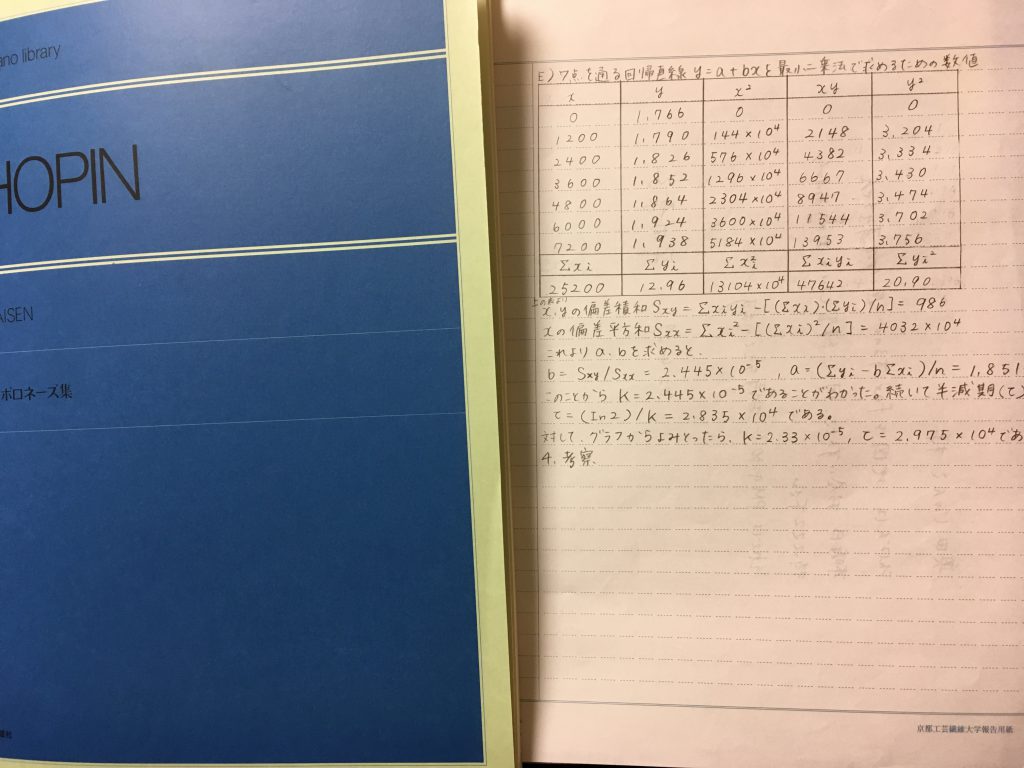 ano library
HOPIN
AISEN
ポロネーズ集
E) 7点を通る回帰直線 y=a+bxを最小二乗法で求めるための数値
x y x² xy y²
0 1,766 0 0 0
1200 1,790 144×10⁴ 2148 3,204
2400 1,826 576×10⁴ 4382 3,334
3600 1,852 1296×10⁴ 6667 3,430
4800 1,864 2304×10⁴ 8947 3,474
6000 1,924 3600×10⁴ 11544 3,702
7200 1,938 5184×10⁴ 13953 3,756
Σxi Σyi Σxi² Σxiyi Σyi²
25200 12,96 13104×10⁴ 47642 20,90
上の表より
x,yの偏差積和Sxy=Σxiyi-[(Σxi)・(Σyi)/n]=986
xの偏差平方和Sxx=Σxi²-[(Σxi)²/n]=4032×10⁴
これより a、bを求めると、
b=Sxy/Sxx=2,445×10⁻⁵, a=(Σyi-bΣxi)/n=1,851
このことから、K=2,445×10⁻⁵であることがわかった。続いて半減期(τ)
τ=(In2)/k=2,835×10⁴である。
対して、グラフからよみとったら、K=2.33×10⁻⁵, τ=2,975×10⁴であ
4、考察
京都工芸繊維大学報告用紙